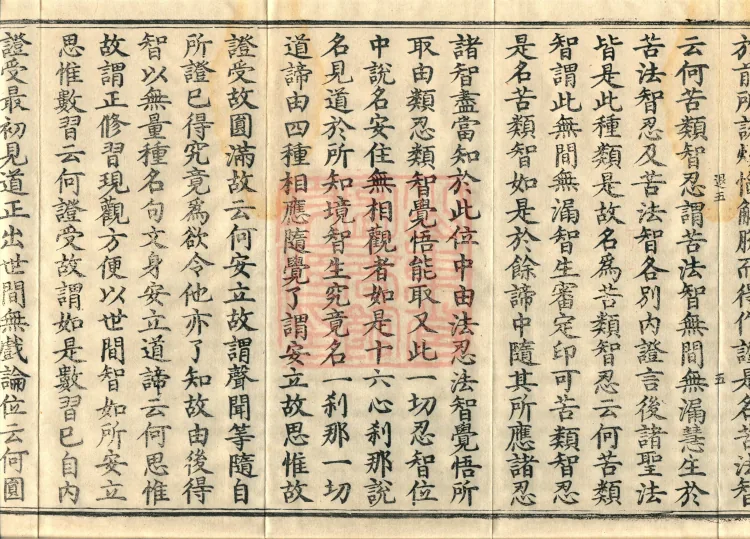 於前所說煩惱解脫而得作證是名苦法智
退五
五
云何苦類智忍謂苦法智無間無漏慧生於
苦法智忍及苦法智各別內證言後諸聖法
皆是此種類是故名爲苦類智忍云何苦類
智謂此無間無漏智生審定印可苦類智忍
是名苦類智如是於餘諦中隨其所應諸忍
諸智盡當知於此位中由法忍法智覺悟所
取由類忍類智覺悟能取又此一切忍智位
中說名安住無相觀者如是十六心刹那說
名見道於所知境智生究竟名一刹那一切
道諦由四種相應隨覺了謂安立故思惟故
證受故圓滿故云何安立故謂聲聞等隨自
所證已得究竟爲欲令他亦了知故由後得
智以無量種名句文身安立道諦云何思惟
故謂正修習現觀方便以世間智如所安立
思惟數習云何證受故謂如是數習已自內
證受最初見道正出世間無戲論位云何圓